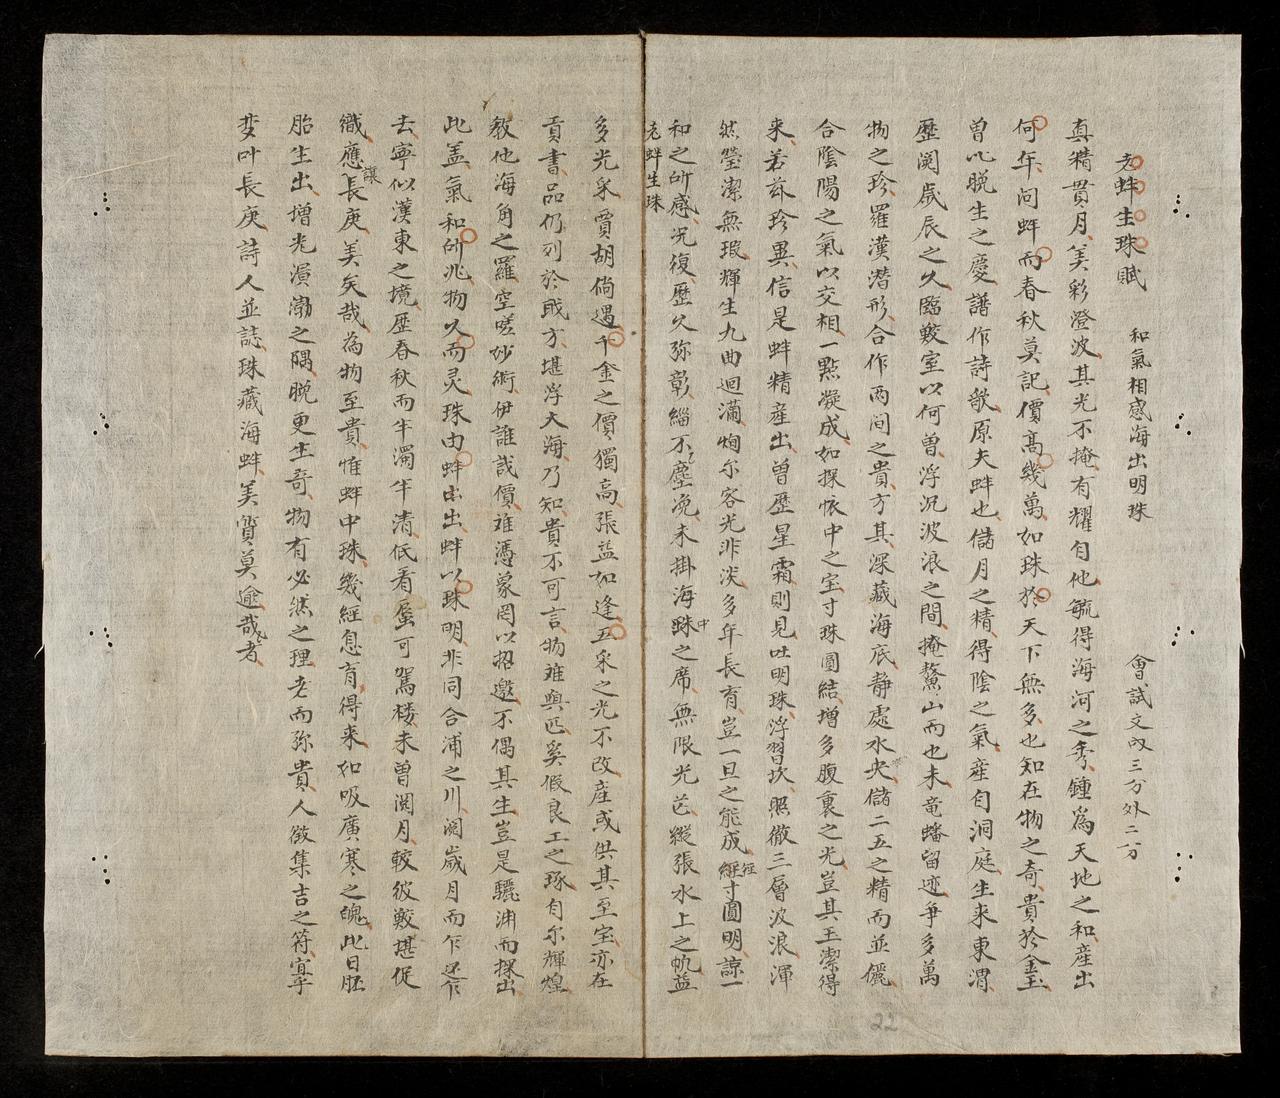 老蚌生珠賦 和氣相感海出明珠 會試文取三分外二分
真精貫月美彩澄波其光不掩有耀自他毓得海河之秀鍾為天地之和産出
何年問蚌而春秋莫記價高幾萬如珠於天下無多也知在物之奇貴於金玉
曽以脫生之慶譜作詩歌原夫蚌也儲月之精得陰之氣産自洞庭生来東渭
歷閱歲辰之久臨鮫室以何曽浮沉波浪之間掩鰲山而也未竜蟠留迹爭多萬
物之珍羅漢潜形合作两间之貴方其深藏海底静處水央儲二五之精而並儷
合陰陽之氣以交相一點凝成如探帳中之宝寸珠圓結增多腹裏之光豈其玉潔得
来若茲珍異信是蚌精産出曽歷星霜則見吐明珠浮習坎照徹三層波浪渾
然瑩潔無瑕輝生九曲迴瀾炯尔容光非淡多年長育豈一旦之能成經寸圓明諒一
和之所感况復歷久弥彰緇不塵浼未掛海中之席無限光芒縱張水上之帆益
老蚌生珠
多光采賈胡倘遇千金之價獨高張益如逢五采之光不改産或供其至宝亦在
貢書品仍列於戝方堪浮大海乃知貴不可言物难與匹奚假良工之琢自尔輝煌
敎他海角之羅空嗟妙術伊誰哉價难憑象罔以招邀不偶其生豈是驪渊而探出
此盖氣和所兆物久而灵珠由蚌出出蚌以珠明非同合浦之川閱歲月而乍还乍
去寧似漢東之境歷春秋而半濁半清低看蜃可駕楼未曽閱月較彼鮫堪促
織應讓長庚美矣哉為物至貴惟蚌中珠幾經息育得来如吸廣寒之魄此日胚
胎生出增光溟渤之隅脫更生奇物有必然之理老而弥貴人徵集吉之符宜乎
叶長庚詩人並誌珠藏海蚌美質莫逾哉者
22